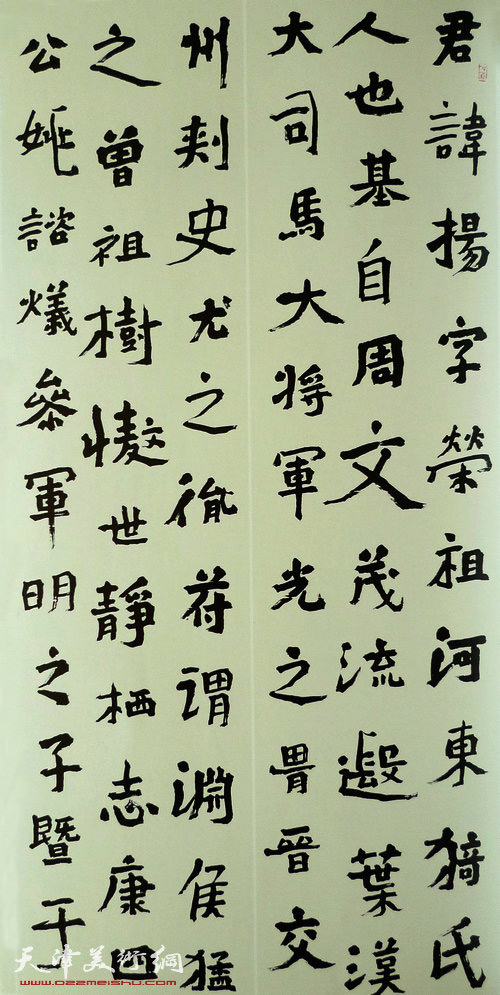 君諱揚字榮祖河東猗氏
人也基自周文茂流遐葉漢
大司馬大将軍光之胄晉交
州刾史尤之胤苻謂淵侯猛
之曾祖樹慠世靜栖志康
公姚諮議叅軍明之子暨于
天津美術網
www.022meishu.com